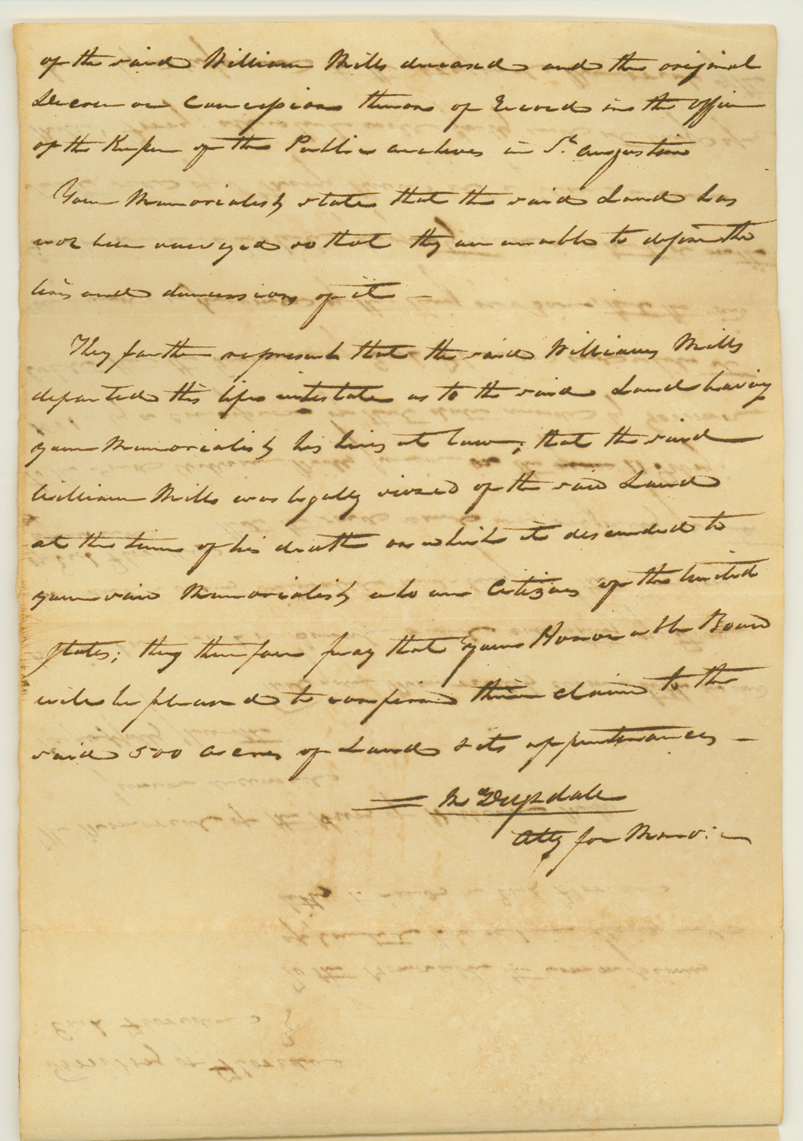 of the said William Mills deceased and the original
Decree or Concession thereon of Record in the office
of the Keeper of the Public archives in St. Augustine
Your Memorialists state that the said Land has
not been surveyed so that they are unable to define the
lines and dimensions of it —
They further represent that the said William Mills
departed this life intestate as to the said Land having
your Memorialists his heirs at law; that the said
William Mills was legally siezed of the said Land
at the time of his death on which it descended to
your said Memorialists who are Citizens of the United
States; they therefore pray that your Honorable Board
will be pleased to confirm their claim to the
said 500 acres of Land & its appurtenances —
Drysdale
Atty for Memo: